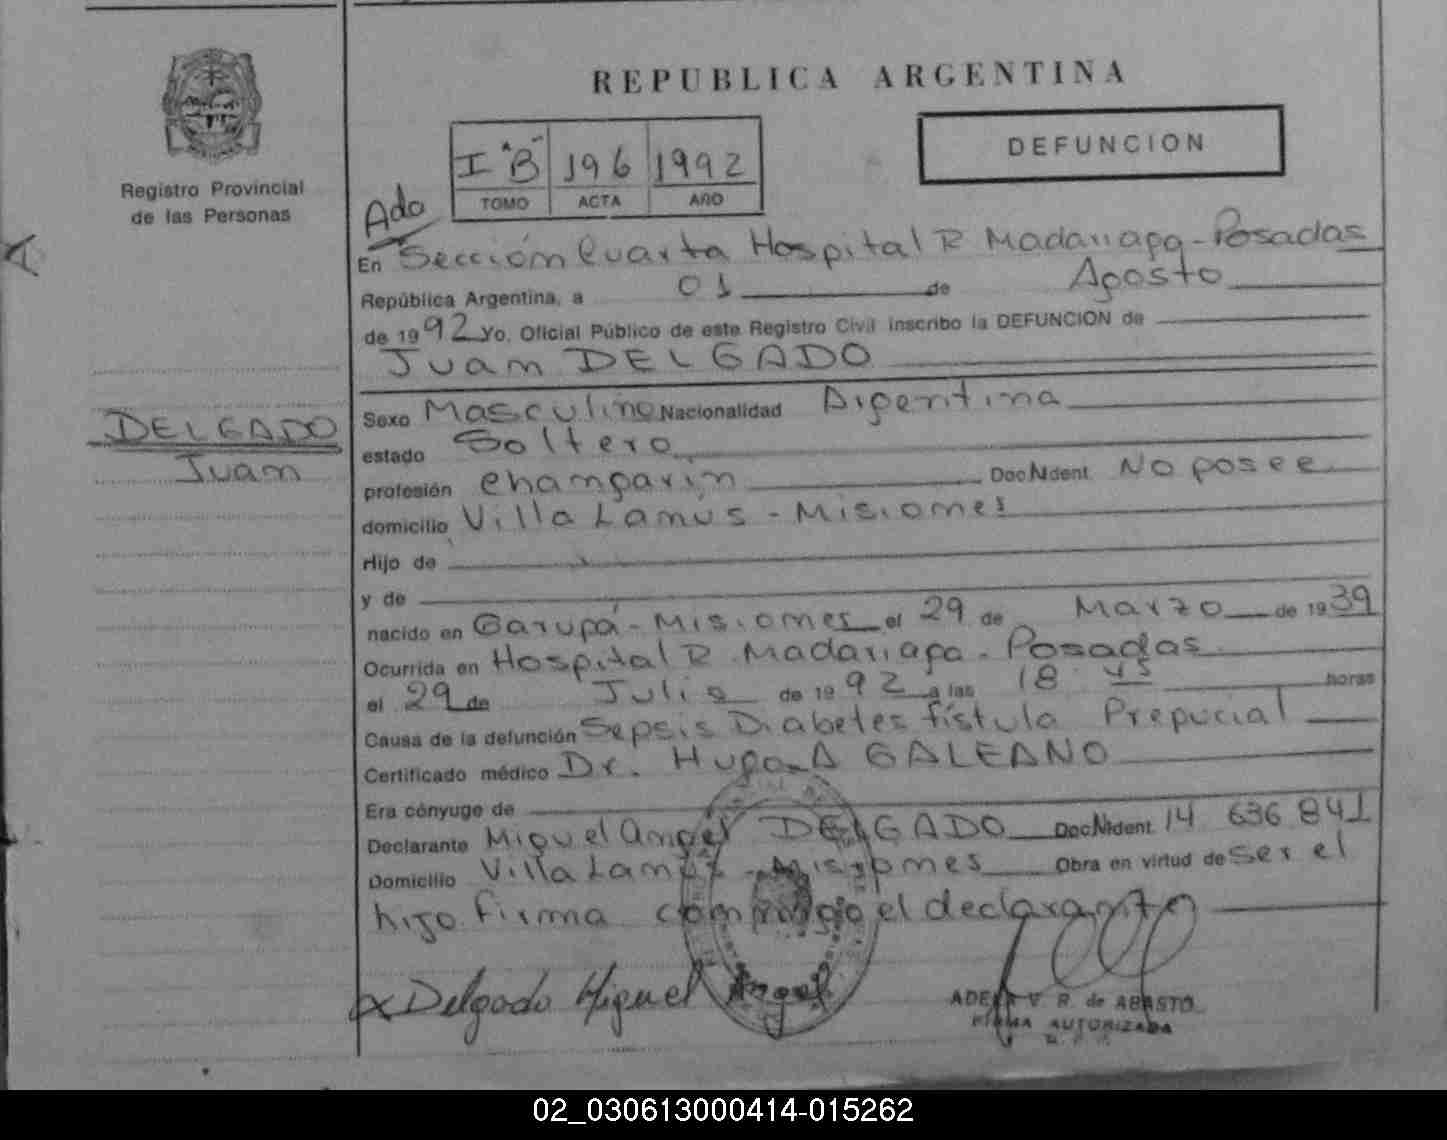 REPUBLICA ARGENTINA
DEFUNCION
I "B" 196 1992
TOMO ACTA AÑO
Registro Provincial
de las Personas
Ada
En Sección Cuarta Hospital R Madariaga - Posadas
República Argentina, a 01 de Agosto
de 1992 Yo, Oficial Público de este Registro Civil inscribo la DEFUNCION de
Juan DELGADO
DELGADO
Juan
Sexo Masculino Nacionalidad Argentina
estado Soltero
profesión Changarin Doc. Ident. No posee
domicilio Villa Lanús - Misiones
Hijo de
y de
nacido en Garupá - Misiones el 29 de Marzo de 1939
Ocurrida en Hospital R. Madariaga - Posadas
el 29 de Julio de 1992 a las 18 45 horas
Causa de la defunción Sepsis Diabetes fístula Prepucial
Certificado médico Dr. Hugo A GALEANO
Era cónyuge de
Declarante Miguel Angel DELGADO Doc. Ident. 14 636 841
Domicilio Villa Lanús - Misiones Obra en virtud de ser el
hijo firma conmigo el declarante
x Delgado Miguel Angel
ADELA V. R. de ABASTO
FIRMA AUTORIZADA
02_030613000414-015262